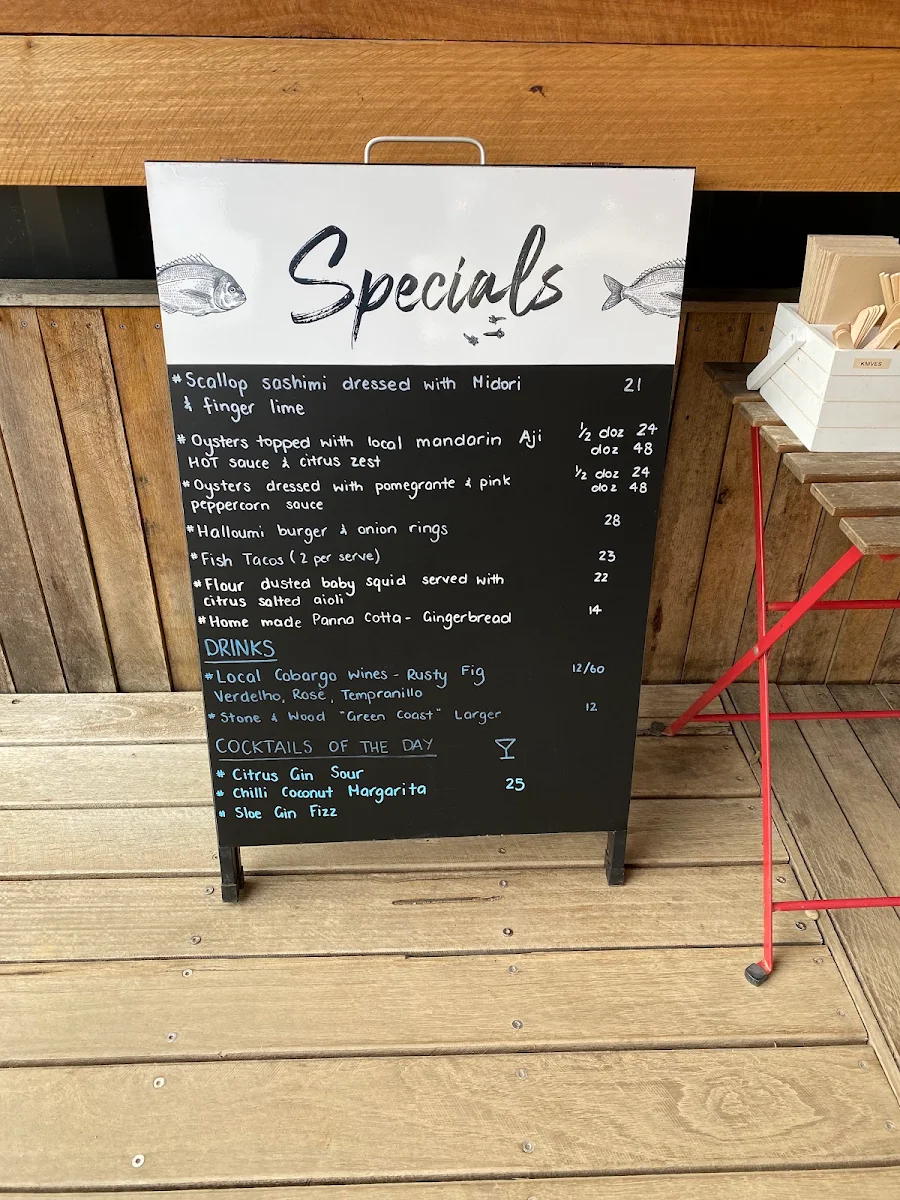 Specials
*Scallop sashimi dressed with Midori 21
& finger lime
* Oysters topped with local mandarin Aji 1/2 doz 24
HOT sauce & citrus zest doz 48
*Oysters dressed with pomegrante & pink 1/2 doz 24
peppercorn sauce doz 48
*Halloumi burger & onion rings 28
*Fish Tacos (2 per serve) 23
*Flour dusted baby squid served with 22
citrus salted aioli
*Home made Panna Cotta - Gingerbread 14
DRINKS
*Local Cobargo Wines - Rusty Fig 12/60
Verdelho, Rosé, Tempranillo
*Stone & Wood "Green Coast" Larger 12
COCKTAILS OF THE DAY
* Citrus Gin Sour
* Chilli Coconut Margarita 25
* Sloe Gin Fizz
KNIVES